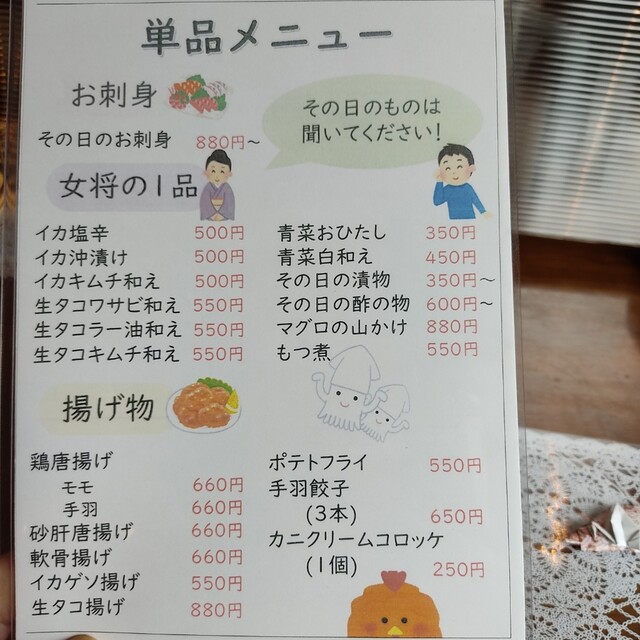 単品メニュー
お刺身
その日のお刺身 880円～
その日のものは
聞いてください!
女将の1品
イカ塩辛 500円
イカ沖漬け 500円
イカキムチ和え 500円
生タコワサビ和え 550円
生タコラー油和え 550円
生タコキムチ和え 550円
青菜おひたし 350円
青菜白和え 450円
その日の漬物 350円～
その日の酢の物 600円～
マグロの山かけ 880円
もつ煮 550円
揚げ物
鶏唐揚げ
モモ 660円
手羽 660円
砂肝唐揚げ 660円
軟骨揚げ 660円
イカゲソ揚げ 550円
生タコ揚げ 880円
ポテトフライ 550円
手羽餃子
(3本) 650円
カニクリームコロッケ
(1個) 250円